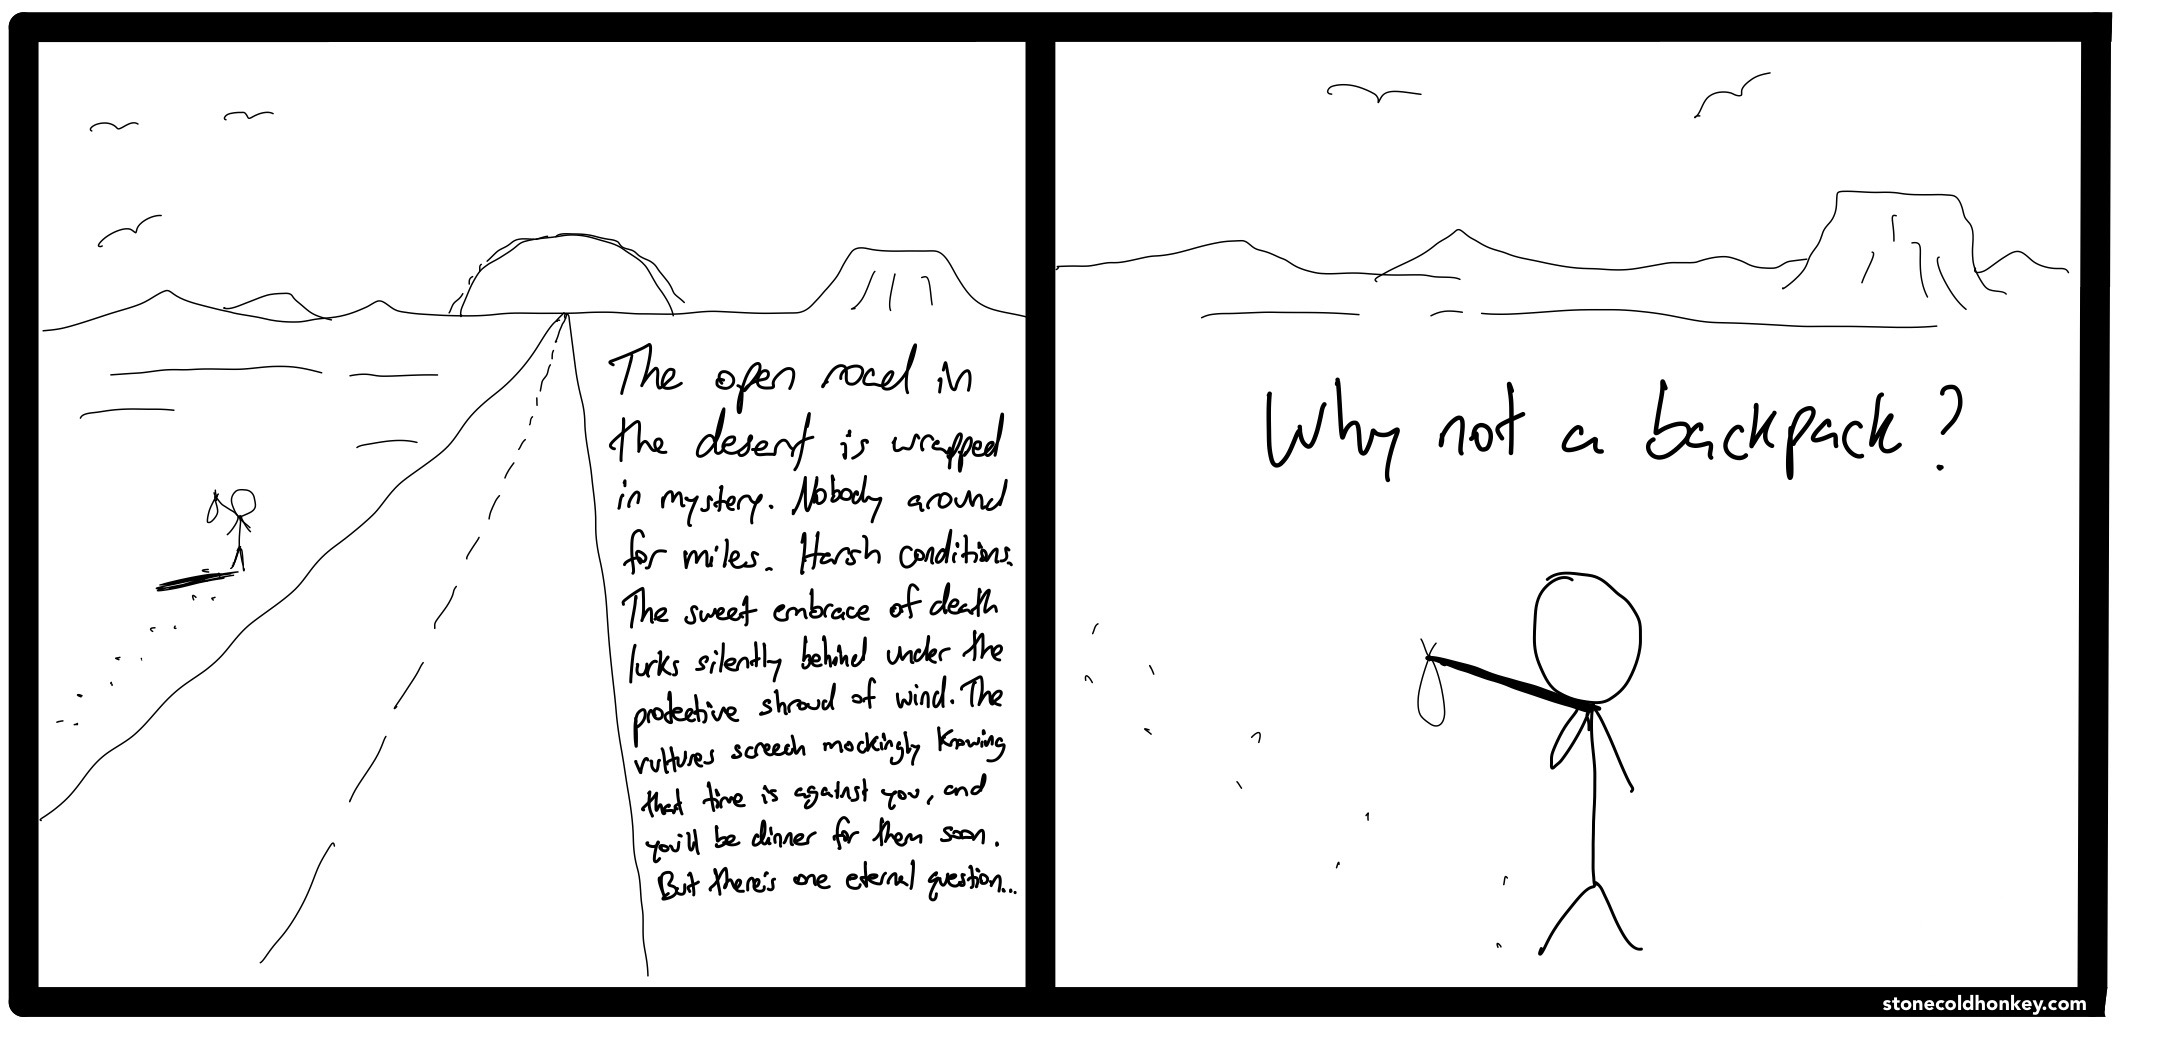 The open road in
the desert is wrapped
in mystery. Nobody around
for miles. Harsh conditions.
The sweet embrace of death
lurks silently behind under the
protective shroud of wind. The
vultures screech mockingly knowing
that time is against you, and
you'll be dinner for them soon.
But there's one eternal question...
Why not a backpack?
stonecoldhonkey.com